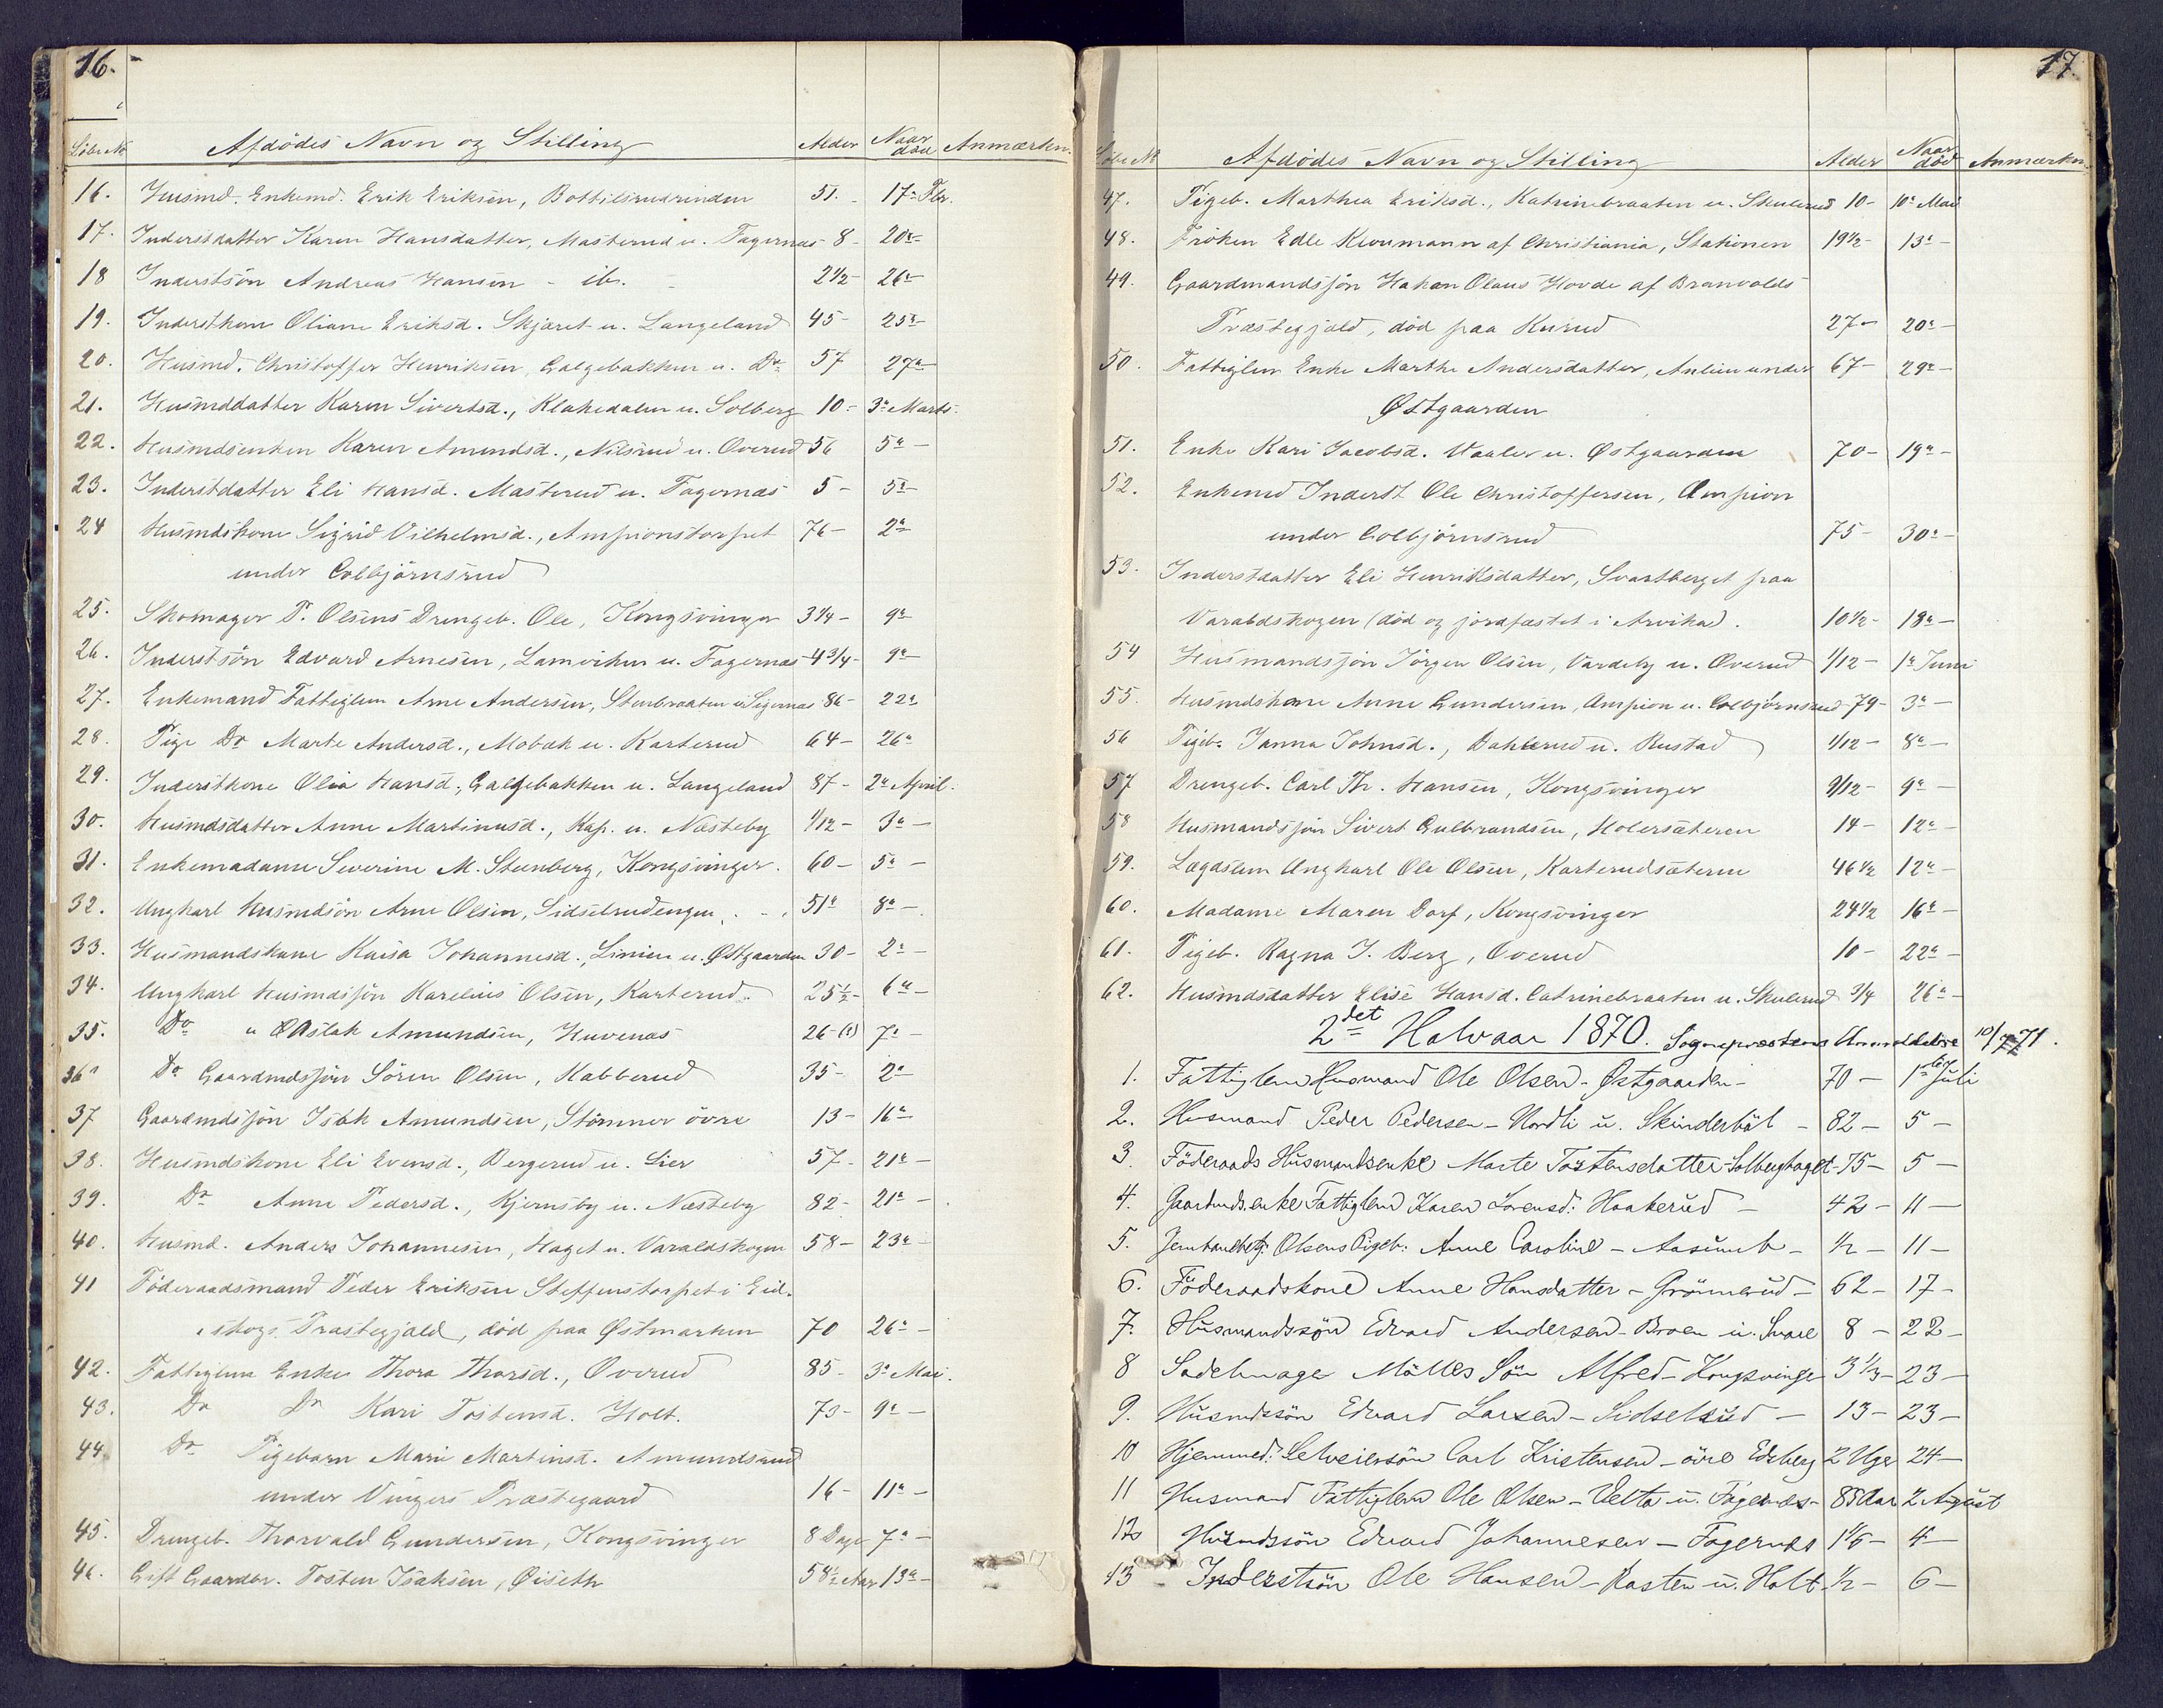 16.
Löbe No Afdödes Navn og Stilling Alder Naar död Anmærkn.
16. Husmd. Enkemd. Erik Eriksen, Bottilsrudrinden 51. - 17de Febr.
17. Inderstdatter Karen Hansdatter, Masterud u. Fagernæs 8 - 20de
18 Inderstsön Andreas Hansen - ib. - 2 1/2 - 26de
19. Inderstkone Oliane Eriksd. Skjæret u. Langeland 45 - 25de
20. Husmd. Christoffer Henriksen, Galgebakken u. Do 57 27de
21. Husmddatter Karen Sivertsd., Klakedalen u. Solberg 10 - 3die Marts.
22. Husmdsenken Karen Amundsd., Nilsrud u. Overud 56 5te -
23. Inderstdatter Eli Hansd. Masterud u. Fagernæs 5 - 5te
24 Husmdskone Sigrid Vilhelmsd., Ampionstorpet 76 - 2de
under Colbjörnsrud
25. Skomager P. Olsens Drengeb. Ole, Kongsvinger 3 1/4 - 9de
26. Inderstsön Edvard Arnesen, Lamoviken u. Fagernæs - 4 3/4 - 9de
27. Enkemand Fattiglem Arne Andersen, Stenbraaten u. Sigernæs 86 - 22de
28. Pige Do Marte Andersd., Mobak u. Karterud 64 - 26de
29. Inderstkone Olia Hansd., Galgebakken u. Langeland 87 - 2den April.
30. Husmdsdatter Anne Martinusd., Kap. u. Næsteby 1/12 - 3die -
31. Enkemadame Severine M. Steenberg, Kongsvinger. 60 - 5te -
32. Ungkarl Husmdsön Arne Olsen, Sidselrudengen. - 51 8de -
33. Husmandskone Kaisa Johannesd., Linien u. Østgaarden 30 - 2den -
34. Ungkarl Husmdsjön Karelius Olsen, Karterud. 25 1/2 - 6te -
35. Do u Aslak Amundsen, Huvenæs 26 - (?) 7de -
36 Do Gaardmdsjön Sören Olsen, Kabberud 35 - 2den
37 Gaardmdsjön Isak Amundsen, Stömner övre 13 - 16de
38. Husmdskone Eli Evensd., Bergerud u. Lier 57 - 21de -
39. Do Anne Pedersd., Kjernsby u. Næsteby 82 - 21de -
40. Husmd. Anders Johannesen, Haget u. Varaldskogen 58 - 23de -
41 Föderaadsmand Peder Eriksen Steffenstorpet i Eid-
skogs Præstegjæld, död paa Østmarken 70 26de -
42. Fattiglem Enke Thora Thorsd., Overud 85 - 3die Mai.
43. Do Do Kari Tostensd. Holt. 73 - 9de -
44. Do Pigebarn Mari Martinsd. Amundsrud
under Vingers Præstegaard 16 - 11de -
45. Drengeb. Thorvald Gundersen, Kongsvinger 8 Dage 7de -
46. Gift Gaardbr. Tosten Isaksen, Øiseth 58 1/2 Aar 13de -
17.
Löbe No Afdödes Navn og Stilling Alder Naar död Anmærkn.
47. Pigeb. Marthea Eriksd., Katrinebraaten u. Skulerud 10 - 10de Mai
48. Fröken Edle Kioumann af Christiania, Stationen 19 1/2 - 13de -
49. Gaardmandsjön Hakan Olaus Hovde af Branvolds
Præstegjæld, död paa Kurud 27 - 20de -
50. Fattiglem Enke Marthe Andersdatter, Anlien under 67 - 29de -
Østgaarden
51. Enke Kari Jacobsd. Vaaler u. Østgaarden 70 - 19de -
52. Enkemd Inderst Ole Christoffersen, Ampion
under Colbjörnsrud 75 - 30de -
53. Inderstdatter Eli Henriksdatter, Svartberget paa
Varaldskogen (död og jordfæstet i Arvika). 10 1/2 - 18de -
54 Husmandsjön Jörgen Olsen, Vardeby u. Overud 1/12 - 1ste Juni
55. Husmdskone Anne Gundersen, Ampion u. Colbjörnsrud 79 - 3die -
56 Pigeb. Janna Johnsd., Dahlerud u. Rustad 1/12 - 8de -
57 Drengeb. Carl Th. Hansen, Kongsvinger 9/12 - 9de -
58 Husmandsjön Sivert Gulbrandsen, Holersæteren 14 - 12de -
59. Lægdslem Ungkarl Ole Olsen, Karterudsæteren 46 1/2 12de -
60. Madame Maren Dorf, Kongsvinger 24 1/2 16de -
61. Pigeb. Ragna J. Berg, Overud 10 - 22de -
62. Husmdsdatter Elise Hansd. Catrinebraaten u. Skulerud 3/4 26de -
2det Halvaar 1870. Sognepræstens Anmeldelse 10/7 71.
1. Fattiglem Husmand Ole Olsen - Østgaarden - 70 - 1ste Juli
2. Husmand Peder Pedersen - Nordli u. Skinderböl - 82 - 5 -
3. Föderaads Husmandsenke Marte Töstensdatter Solberghaget - 75 - 5 -
4. Gaardmds.enke Fattiglem Karen Lorensd: Haakerud - 42 - 11 -
5. Jernbanebetj: Olsens Pigeb: Anne Caroline - Aasumb - 1/2 - 11 -
6. Föderaadskone Anne Hansdatter - Grönnerud - 62 - 17 -
7. Husmandssön Edvard Andersen - Broen u. Svare 8 - 22 -
8 Sadelmager Möllers Sön Alfred - Kongsvinger 3 1/3 - 23 -
9. Husmdssön Edvard Larsen - Sidselrud - 13 - 23 -
10 Hjemmed: Selveiersön Carl Kristensen - övre Edsberg 2 Uger 24 -
11 Husmand Fattiglem Ole Olsen - Velta u. Fagernæs - 85 Aar 2 August
12 Husmdssön Edvard Johannesen - Fagernæs 1 1/6 - 4 -
13 - Inderstsön Ole Hansen - Rasten u. Holt - 1/2 - 6 -